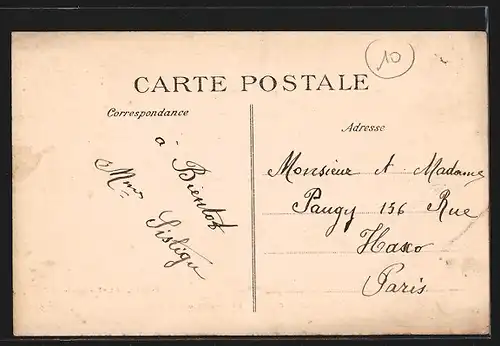 10
CARTE POSTALE
Correspondance
à Bientot
Mme Sisligu
Adresse
Monsieur et Madame
Paugy 156 Rue
Haxo
Paris